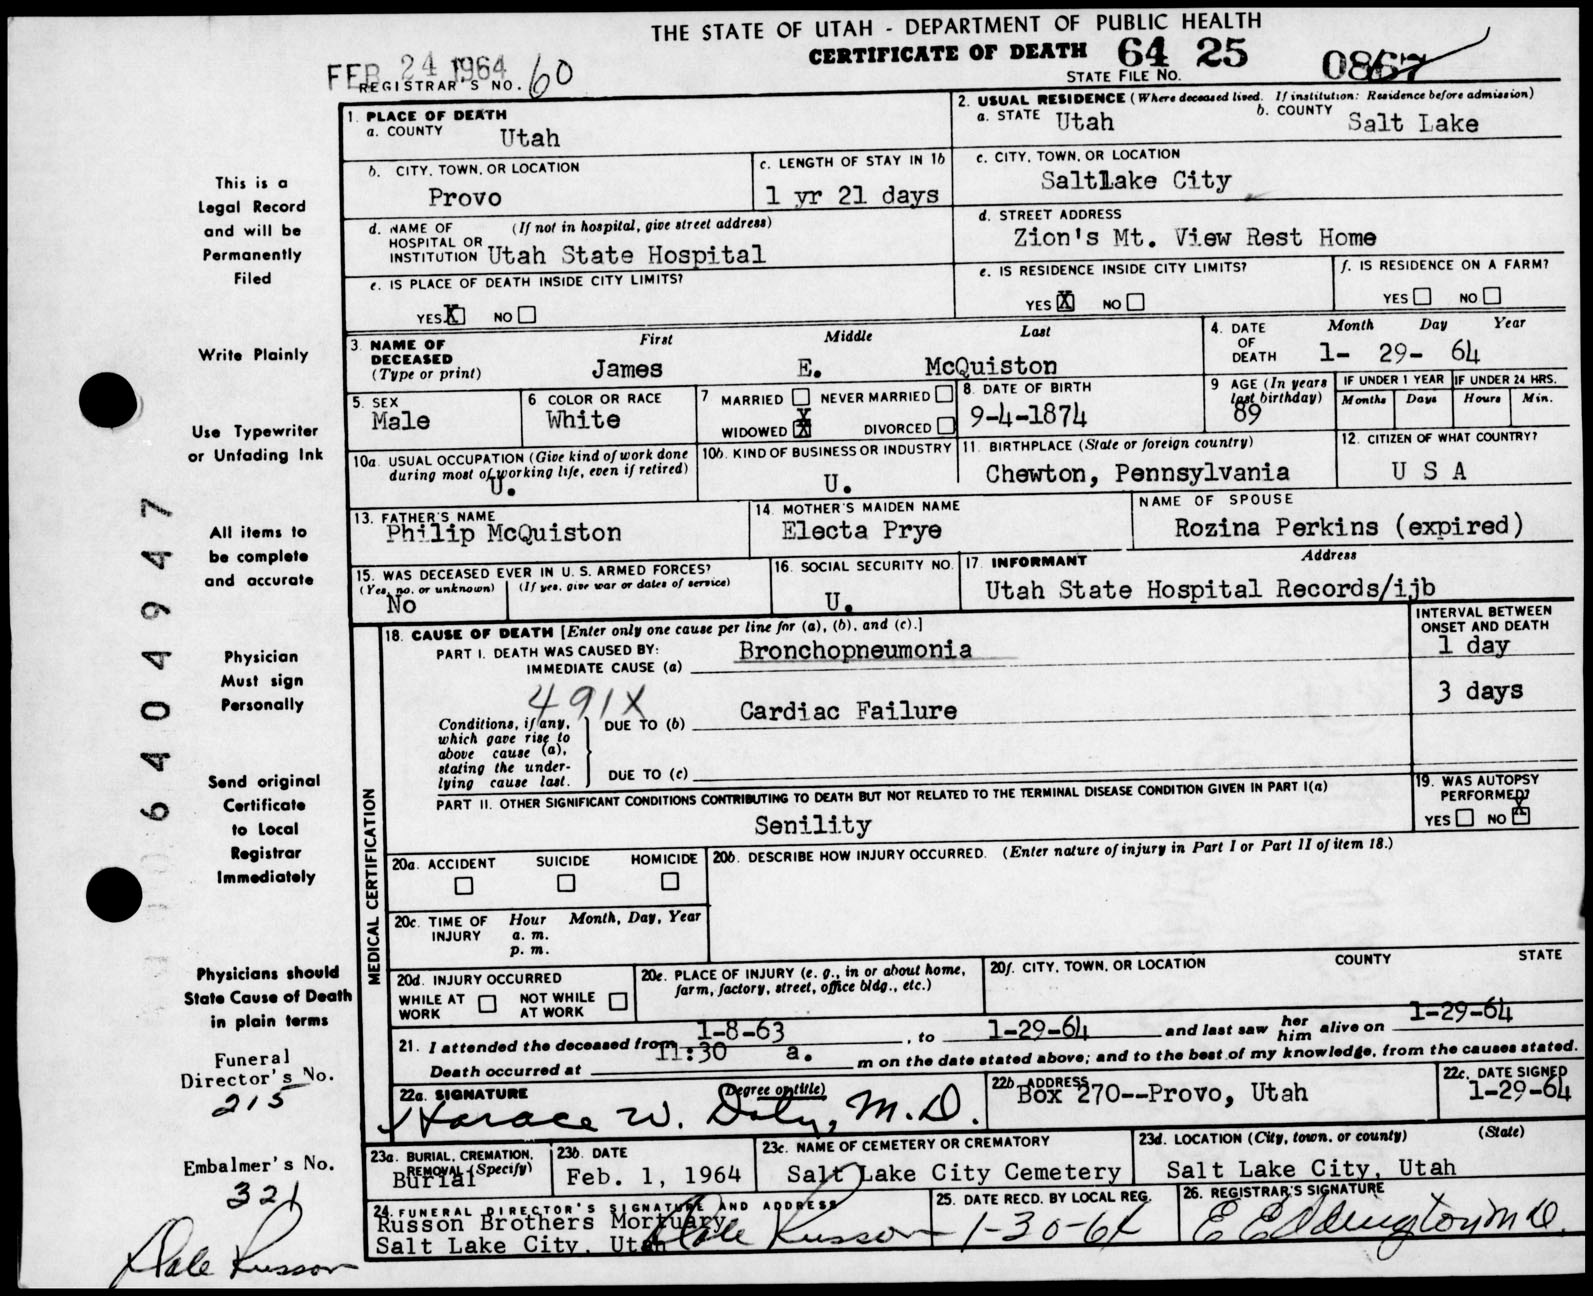 THE STATE OF UTAH - DEPARTMENT OF PUBLIC HEALTH
CERTIFICATE OF DEATH 64 25 0867
STATE FILE NO.
FEB 24 1964
REGISTRAR'S NO. 60
1. PLACE OF DEATH
a. COUNTY Utah
2. USUAL RESIDENCE (Where deceased lived. If institution: Residence before admission)
a. STATE Utah b. COUNTY Salt Lake
b. CITY, TOWN, OR LOCATION Provo
c. LENGTH OF STAY IN 1b 1 yr 21 days
c. CITY, TOWN, OR LOCATION SaltLake City
d. NAME OF HOSPITAL OR INSTITUTION (If not in hospital, give street address) Utah State Hospital
d. STREET ADDRESS Zion's Mt. View Rest Home
e. IS PLACE OF DEATH INSIDE CITY LIMITS?
YES X NO
e. IS RESIDENCE INSIDE CITY LIMITS?
YES X NO
f. IS RESIDENCE ON A FARM?
YES NO
3. NAME OF DECEASED (Type or print) First Middle Last
James E. McQuiston
4. DATE OF DEATH Month Day Year
1- 29- 64
5. SEX Male
6 COLOR OR RACE White
7 MARRIED NEVER MARRIED
WIDOWED X DIVORCED
8. DATE OF BIRTH 9-4-1874
9 AGE (In years last birthday) 89
IF UNDER 1 YEAR Months Days
IF UNDER 24 HRS. Hours Min.
10a. USUAL OCCUPATION (Give kind of work done during most of working life, even if retired) U.
10b. KIND OF BUSINESS OR INDUSTRY U.
11. BIRTHPLACE (State or foreign country) Chewton, Pennsylvania
12. CITIZEN OF WHAT COUNTRY? U S A
13. FATHER'S NAME Philip McQuiston
14. MOTHER'S MAIDEN NAME Electa Prye
NAME OF SPOUSE Rozina Perkins (expired)
15. WAS DECEASED EVER IN U. S. ARMED FORCES?
(Yes, no. or unknown) (If yes, give war or dates of service)
No
16. SOCIAL SECURITY NO. U.
17. INFORMANT Address
Utah State Hospital Records/ijb
18. CAUSE OF DEATH [Enter only one cause per line for (a), (b), and (c).]
INTERVAL BETWEEN ONSET AND DEATH
PART I. DEATH WAS CAUSED BY:
IMMEDIATE CAUSE (a) Bronchopneumonia 1 day
491X
Conditions, if any, which gave rise to above cause (a), stating the underlying cause last.
DUE TO (b) Cardiac Failure 3 days
DUE TO (c)
PART II. OTHER SIGNIFICANT CONDITIONS CONTRIBUTING TO DEATH BUT NOT RELATED TO THE TERMINAL DISEASE CONDITION GIVEN IN PART I(a)
Senility
19. WAS AUTOPSY PERFORMED?
YES NO X
MEDICAL CERTIFICATION
20a. ACCIDENT SUICIDE HOMICIDE
20b. DESCRIBE HOW INJURY OCCURRED. (Enter nature of injury in Part I or Part II of item 18.)
20c. TIME OF INJURY Hour Month, Day, Year
a. m.
p. m.
20d. INJURY OCCURRED
WHILE AT WORK NOT WHILE AT WORK
20e. PLACE OF INJURY (e. g., in or about home, farm, factory, street, office bldg., etc.)
20f. CITY, TOWN, OR LOCATION COUNTY STATE
21. I attended the deceased from 1-8-63, to 1-29-64 and last saw her him alive on 1-29-64
Death occurred at 11:30 a. m on the date stated above; and to the best of my knowledge, from the causes stated.
22a. SIGNATURE (Degree or title)
Horace W. Daly, M.D.
22b ADDRESS Box 270--Provo, Utah
22c. DATE SIGNED 1-29-64
23a. BURIAL, CREMATION, REMOVAL (Specify) Burial
23b. DATE Feb. 1, 1964
23c. NAME OF CEMETERY OR CREMATORY Salt Lake City Cemetery
23d. LOCATION (City, town, or county) (State)
Salt Lake City, Utah
24. FUNERAL DIRECTOR'S SIGNATURE AND ADDRESS
Russon Brothers Mortuary
Salt Lake City, Utah Dale Russon
25. DATE RECD. BY LOCAL REG. 1-30-64
26. REGISTRAR'S SIGNATURE
E E Eddington M D.
This is a
Legal Record
and will be
Permanently
Filed
Write Plainly
Use Typewriter
or Unfading Ink
All items to
be complete
and accurate
Physician
Must sign
Personally
Send original
Certificate
to Local
Registrar
Immediately
Physicians should
State Cause of Death
in plain terms
Funeral
Director's No.
215
Embalmer's No.
321
Dale Russon
6404947